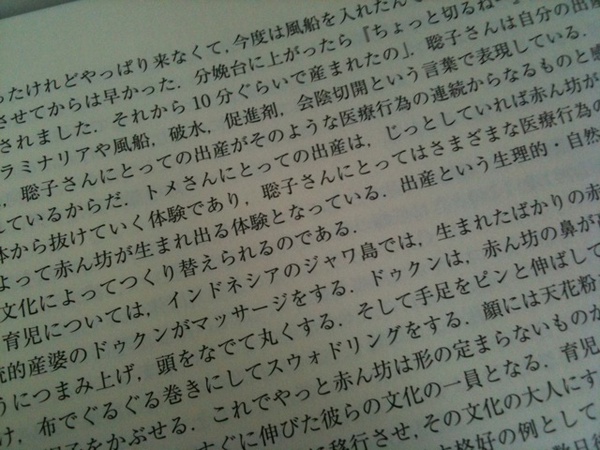 ったけれどやっぱり来なくて，今度は風船を入れたんで
させてからは早かった．分娩台に上がったら『ちょっと切るねー』
されました．それから10分ぐらいで産まれたの」．聡子さんは自分の出産
ラミナリアや風船，破水，促進剤，会陰切開という言葉で表現している．
，聡子さんにとっての出産がそのような医療行為の連続からなるものと感
れているからだ．トメさんにとっての出産は，じっとしていれば赤ん坊が
体から抜けていく体験であり，聡子さんにとってはさまざまな医療行為の
よって赤ん坊が生まれ出る体験となっている．出産という生理的・自然
文化によってつくり替えられるのである．
育児については，インドネシアのジャワ島では，生まれたばかりの赤
統的産婆のドゥクンがマッサージをする．ドゥクンは，赤ん坊の鼻が高
うにつまみ上げ，頭をなでて丸くする．そして手足をピンと伸ばして
け，布でぐるぐる巻きにしてスウォドリングをする．顔には天花粉
をかぶせる．これでやっと赤ん坊は形の定まらないものか
すぐに伸びた彼らの文化の一員となる．育児
に移行させ，その文化の大人にす
格好の例として